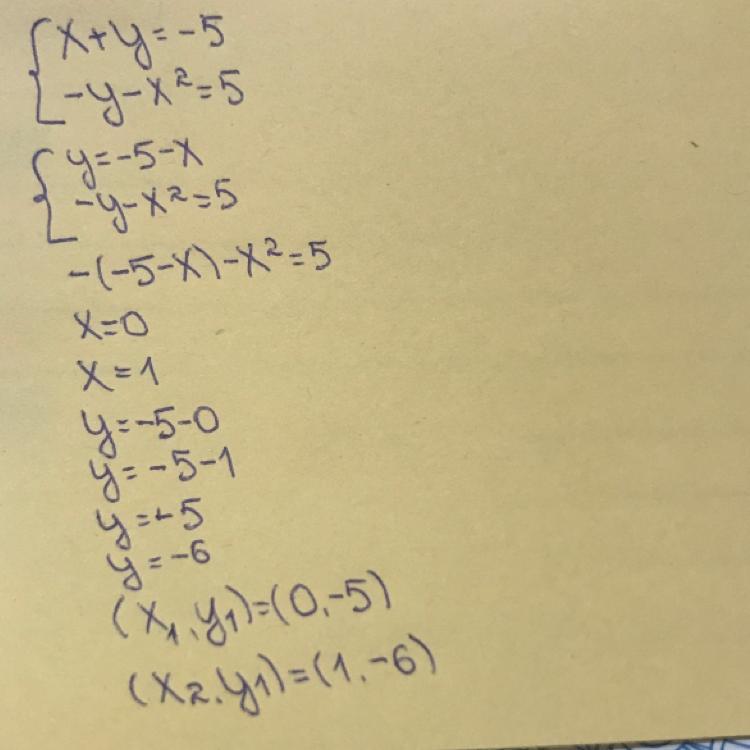 x+y=-5
-y-x²=5
y=-5-x
-y-x²=5
-(-5-x)-x²=5
x=0
x=1
y=-5-0
y=-5-1
y=-5
y=-6
(x₁,y₁)=(0,-5)
(x₂,y₁)=(1,-6)